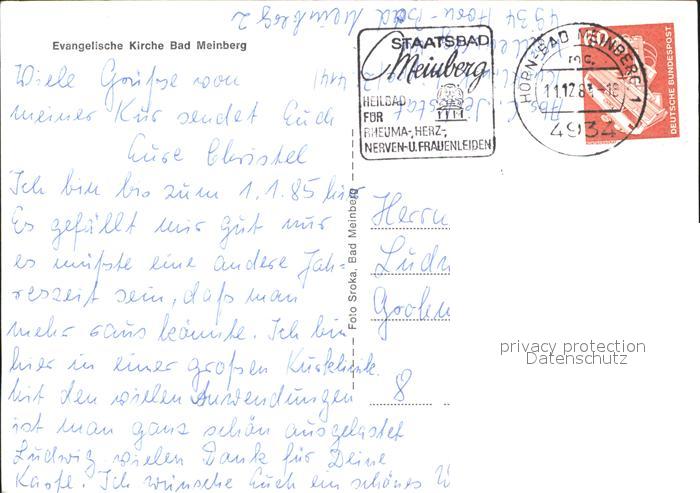 Evangelische Kirche Bad Meinberg
Viele Grüße von
meiner Kur sendet Euch
Eure Christel
Ich bin bis zum 1.1.85 hier
Es gefällt mir gut nur
es müßte eine andere Jah-
reszeit sein, daß man
mehr raus könnte. Ich bin
hier in einer großen Kurklinik.
Mit den vielen Anwendungen
ist man ganz schön ausgelastet
Ludwig vielen Dank für Deine
Karte. Ich wünsche Euch ein schönes
4934 Horn-Bad Meinberg 2
STAATSBAD
Meinberg
HEILBAD
FÜR
RHEUMA-, HERZ-,
NERVEN-U. FRAUENLEIDEN
HORN-BAD MEINBERG 1
4934
DEUTSCHE BUNDESPOST
Foto Sroka, Bad Meinberg
Herrn
8
privacy protection
Datenschutz